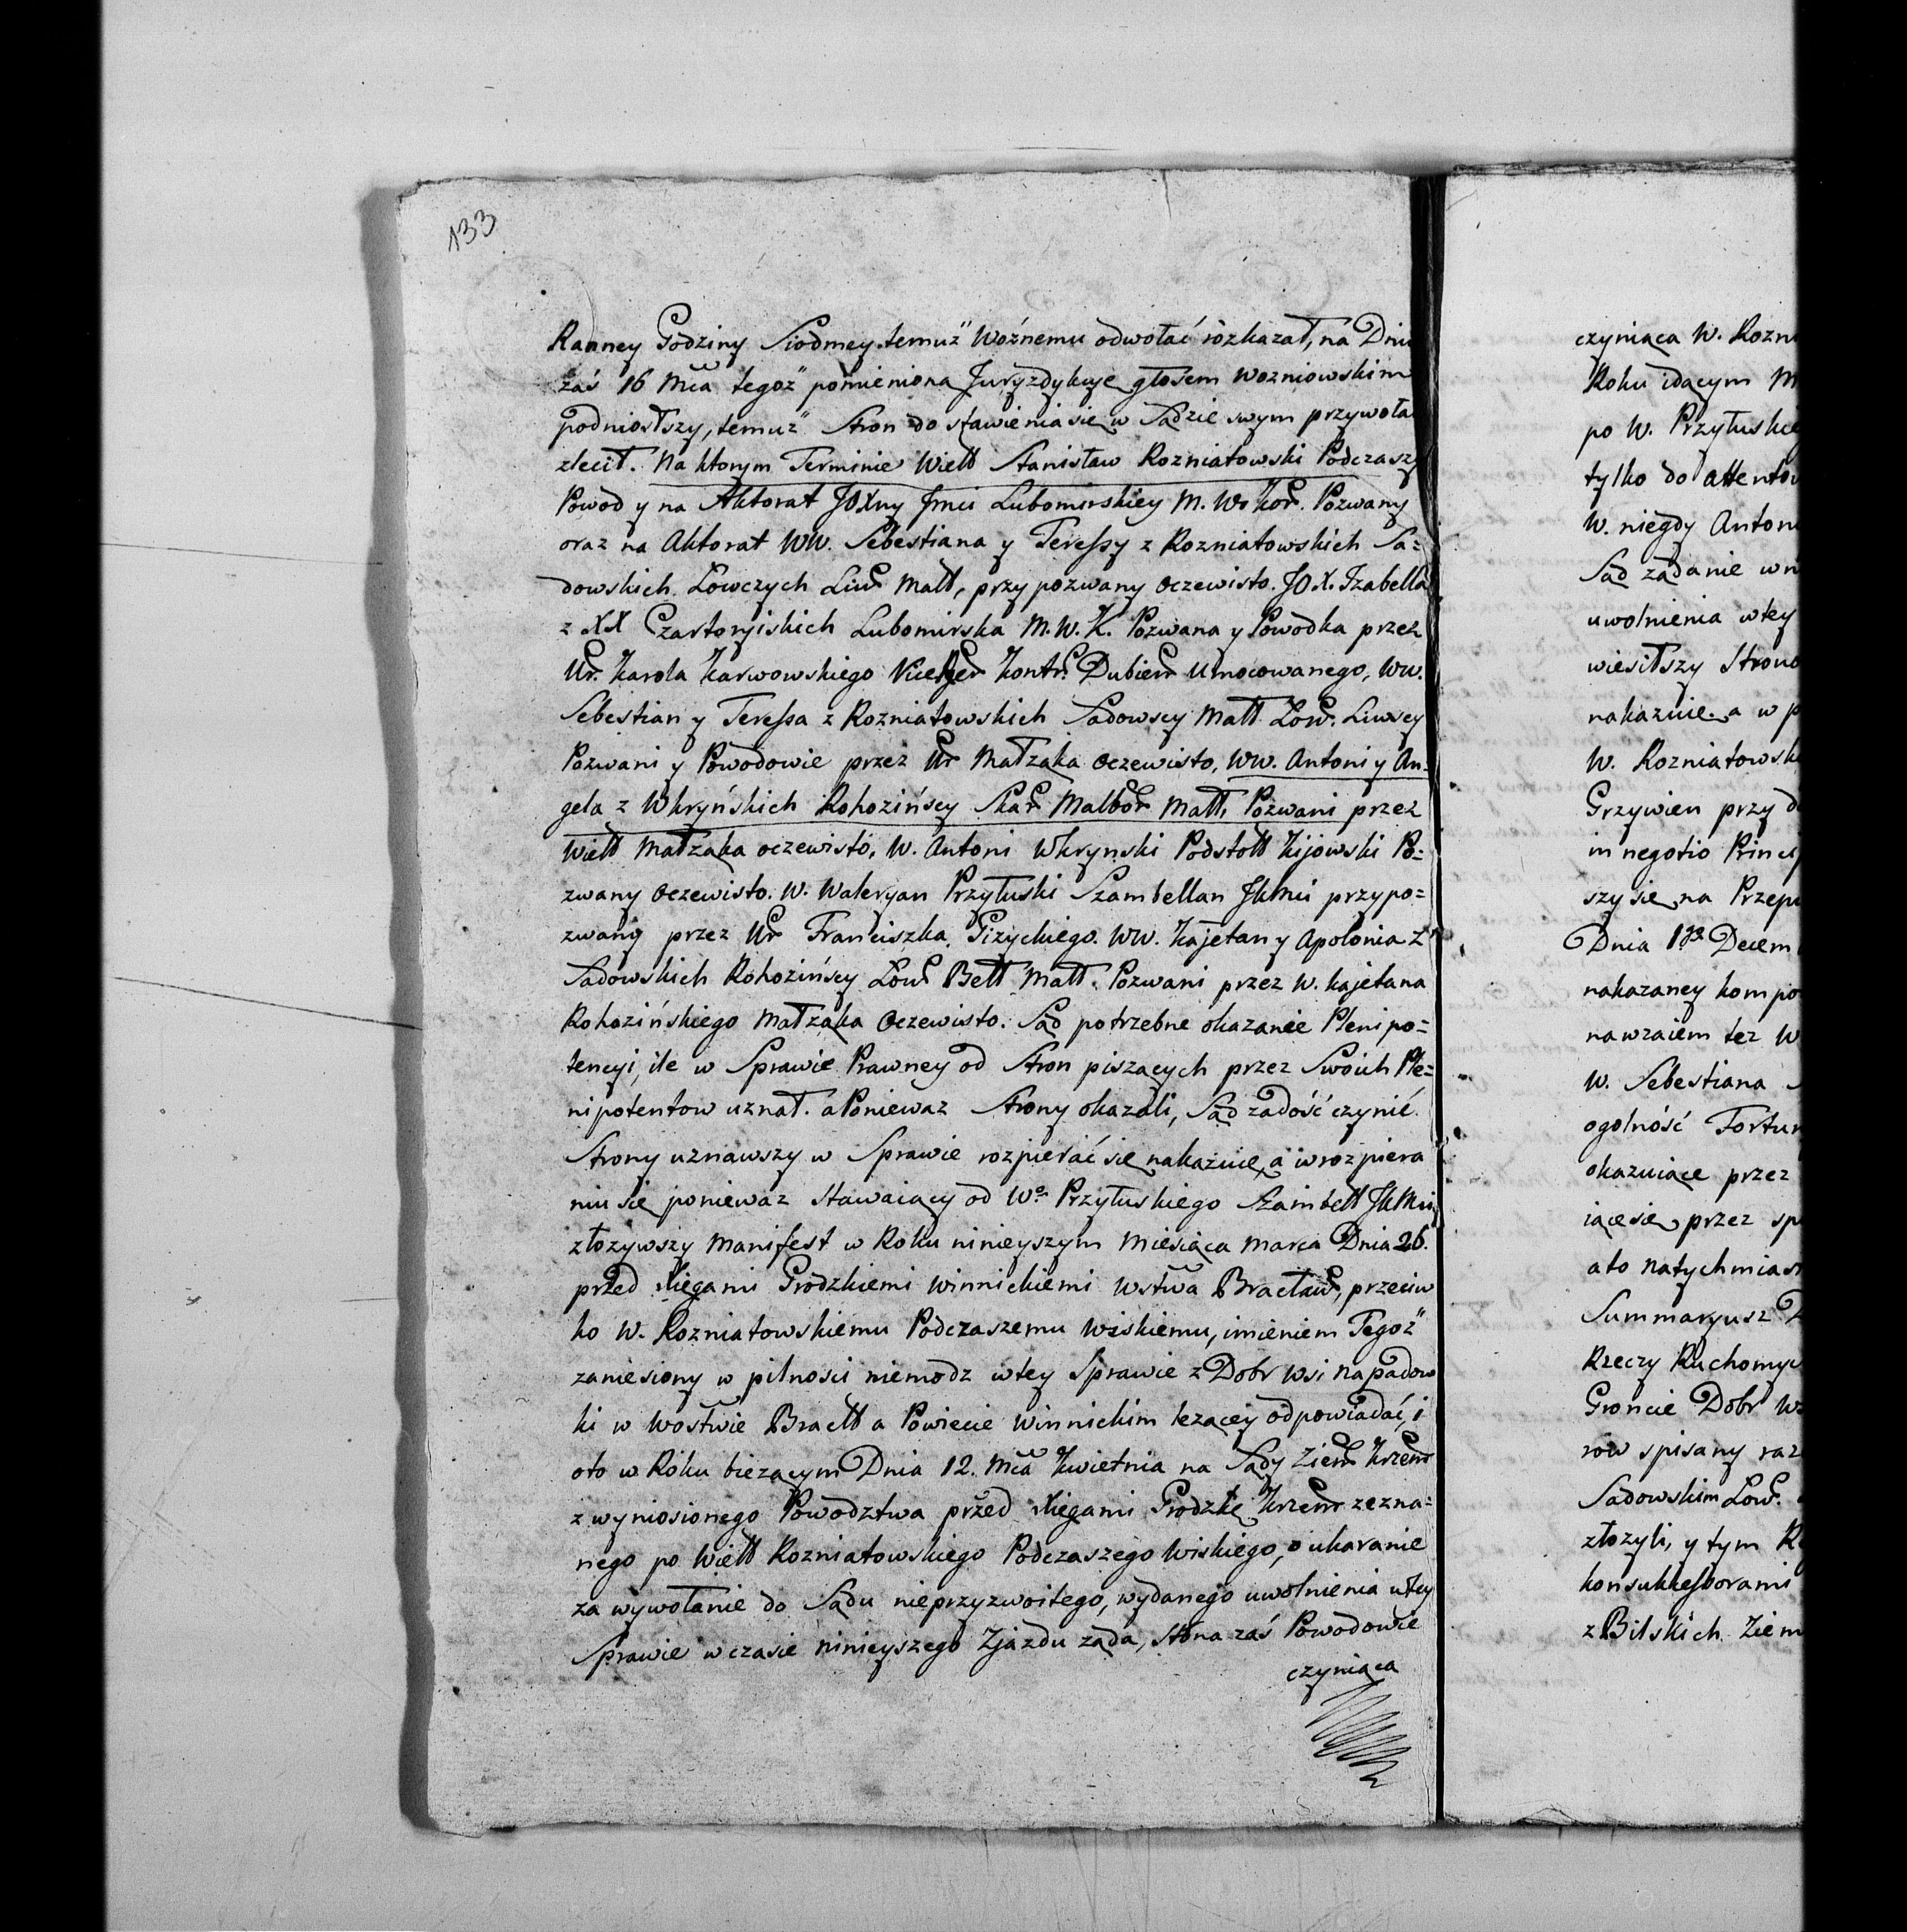 133
Ranney Godziny Siodmey temuż Woźnemu odwołać rozkazał, na Dniu
zaś 16 Mca tegoż pomieniona Juryzdykcye głosem wozniowskim
podniosłszy, temuż Stron do stawienia się w Sądzie swym przywołać
zlecił. Na ktorym Terminie Wiell Stanisław Rozniatowski Podczaszy
Powod y na Aktorat JOXny Jmci Lubomirskiey M. W. Kor. Pozwany
oraz na Aktorat WW. Sebestiana y Teressy z Rozniatowskich Sa=
dowskich Łowczych Liw Małł, przypozwany Oczewisto. JOX. Izabella
z XX Czartoryiskich Lubomirska M. W. K. Pozwana y Powodka przez
Ur. Karola Karwowskiego ViceRger Kontr. Dubien Umocowanego, WW.
Sebestian y Teressa z Rozniatowskich Sadowscy Małł Łow. Liwscy
Pozwani y Powodowie przez Ur Małżąka Oczewisto, WW. Antoni y An=
gela z Wkryńskich Rohozińscy Skar Malbor Małł, Pozwani przez
Wiell Małżąka oczewisto, W. Antoni Wkrynski Podstoll Kijowski Po=
zwany Oczewisto. W. Waleryan Przyłuski Szambellan JKMci przypo=
zwany przez Ur Franciszka Giżyckiego. WW. Kajetan y Apolonia z
Sadowskich Rohozińscy Łow Bełł Małł. Pozwani przez W. Kajetana
Rohozińskiego Małżąka Oczewisto. Sąd potrzebne okazanie Plenipo=
tencyi, ile w Sprawie Prawney od Stron piszących przez Swoich Ple=
nipotentow uznał. a Poniewaz Strony okazali, Sąd zadość czynić
Strony uznawszy w Sprawie rozpierać się nakazuie, a w rozpiera
niu się poniewaz stawaiący od Wo Przyłuskiego Szambell JKMci
złozywszy Manifest w Roku ninieyszym Miesiąca Marca Dnia 26.
przed Xięgami Grodzkiemi Winnickiemi Wstwa Bracław, przeciw
ko W. Rozniatowskiemu Podczaszemu Wiskiemu, imieniem Tegoż
zaniesiony w pilności niemodz w tey Sprawie z Dobr Wsi Napadow
ki w Wostwie Bracll a Powiecie Winnickim lezącey odpowiadać, i
oto w Roku biezącym Dnia 12. Mca Kwietnia na Sądy Ziem Krzem
z wyniosionego Powodztwa przed Xięgami Grodzke Krzem zezna=
nego po Wiell Rozniatowskiego Podczaszego Wiskiego, o ukaranie
za wywołanie do Sądu nieprzyzwoitego, wydanego uwolnienia w tey
Sprawie w czasie ninieyszego Zjazdu ząda, strona zaś Powodowie
czyniąca
czyniąca W. Rozni
Roku idącym M
po W. Przyłuskie
tylko do attentow
W. niegdy Antoni
Sąd ządanie wn
uwolnienia w tey
wiesiłszy Strono
nakazuie a w p
W. Rozniatowsk
Grzywien przy d
in negotio Princip
szy się na Przepi
Dnia 1go Decem
nakazaney kompo
nawzaiem tez W
W. Sebestiana
ogolność Fortun
okazuiące przez
iące się przez sp
a to natychmiast
Summaryusz
Rzeczy Ruchomyc
Groncie Dobr W
row spisany raz
Sadowskim Łow.
złozyli, y tym
konsukkessorami
z Bilskich Ziem